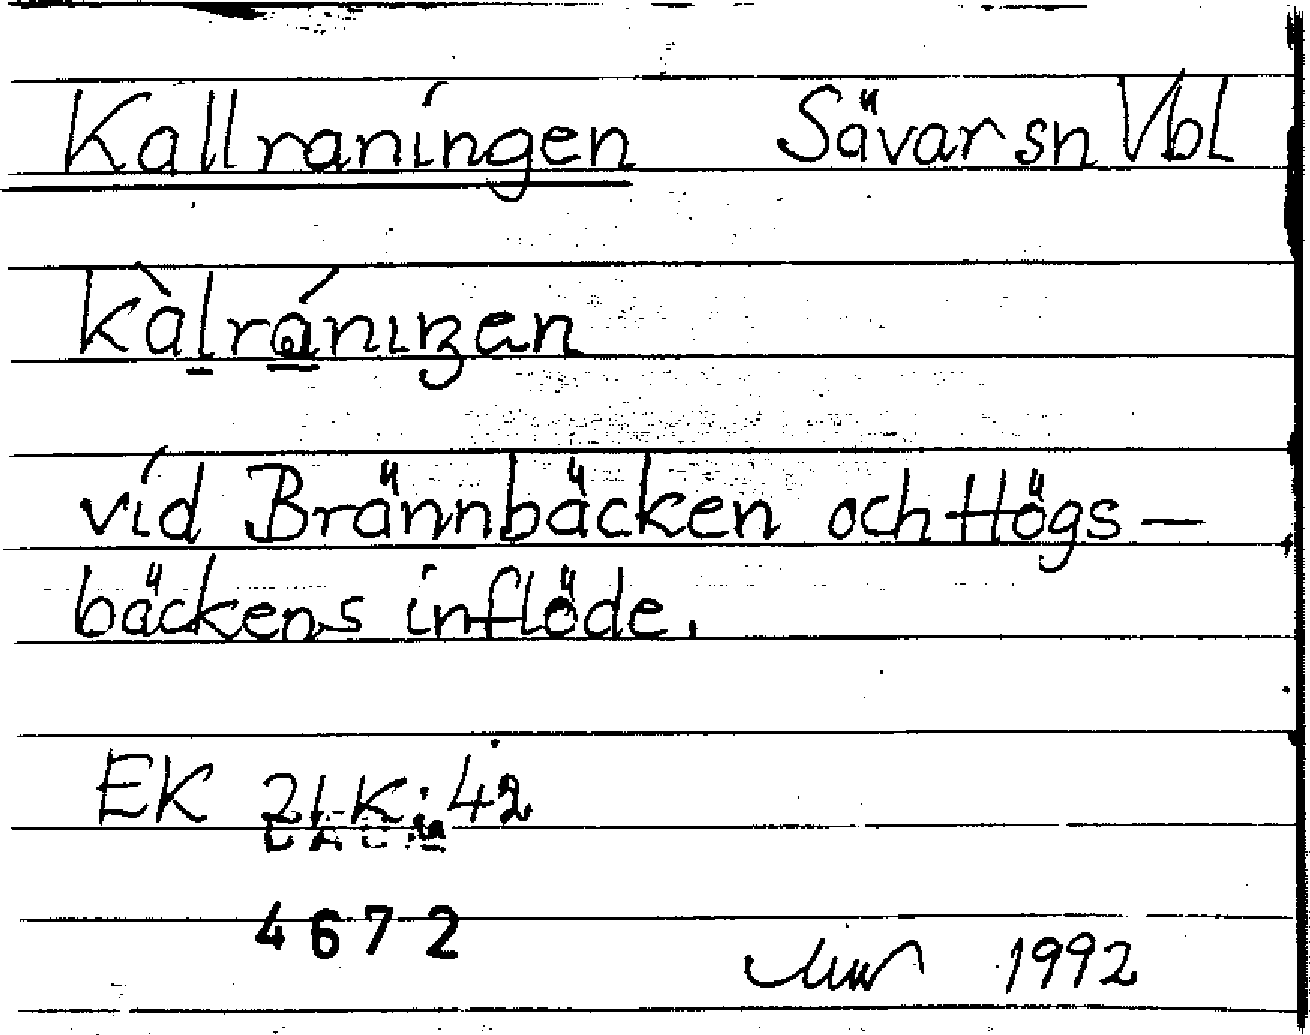 Kallraningen Sävar sn Vbl
kàlránıŋen
vid Brännbäcken och Högs-
bäckens inflöde.
EK 21 K:42
4672
1992